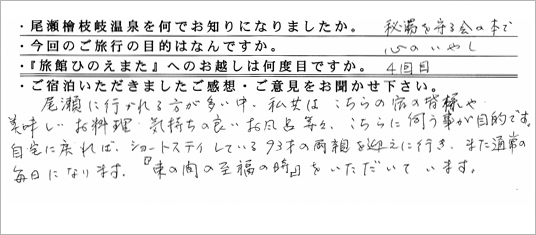 ・尾瀬檜枝岐温泉を何でお知りになりましたか。 秘湯を守る会の本で
・今回のご旅行の目的はなんですか。 心のいやし
・『旅館ひのえまた』へのお越しは何度目ですか。 4回目
・ご宿泊いただきましたご感想・ご意見をお聞かせ下さい。
尾瀬に行かれる方が多い中、私共は こちらの宿の皆様や
美味しいお料理・気持ちの良いお風呂等々、こちらに伺う事が目的です。
自宅に戻れば、ショートステイしている93才の両親を迎えに行き、また通常の
毎日になります。『束の間の至福の時』をいただいています。